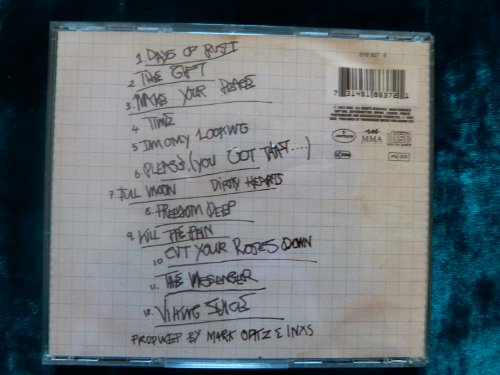 1 DAYS OF RUST
2 THE GIFT
3. MAKE YOUR PEACE
4 TIME
5 I'M ONLY LOOKING
6. PLEASE. (YOU GOT THAT....)
7. FULL MOON DIRTY HEARTS
8. FREEDOM DEEP
9. KILL THE PAIN
10. CUT YOUR ROSES DOWN
11. THE MESSENGER
12. VIKING JUICE
PRODUCED BY MARK OPITZ & INXS
518 637-2
7 31451 86372 1
mercury
MMA
COMPACT disc DIGITAL AUDIO